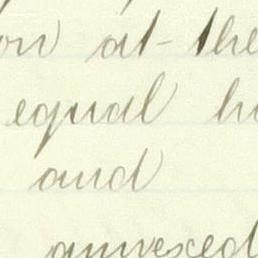 on at the
equal h
and
annexed